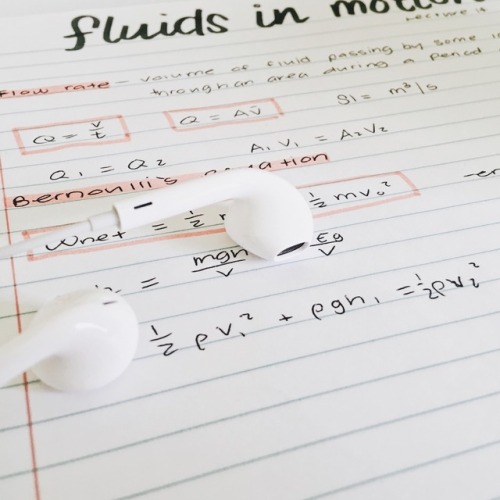 fluids in motion
Lecture 14
Flow rate - volume of fluid passing by some
through an area during a period
Q = V/t
Q = Av̄
SI = m³/s
Q₁ = Q₂
A₁V₁ = A₂V₂
Bernoulli's equation
Wnet = ½ ½mv₀²
= mgh/V Eg/V
½ρv₁² + ρgh₁ = ½ρv₂²